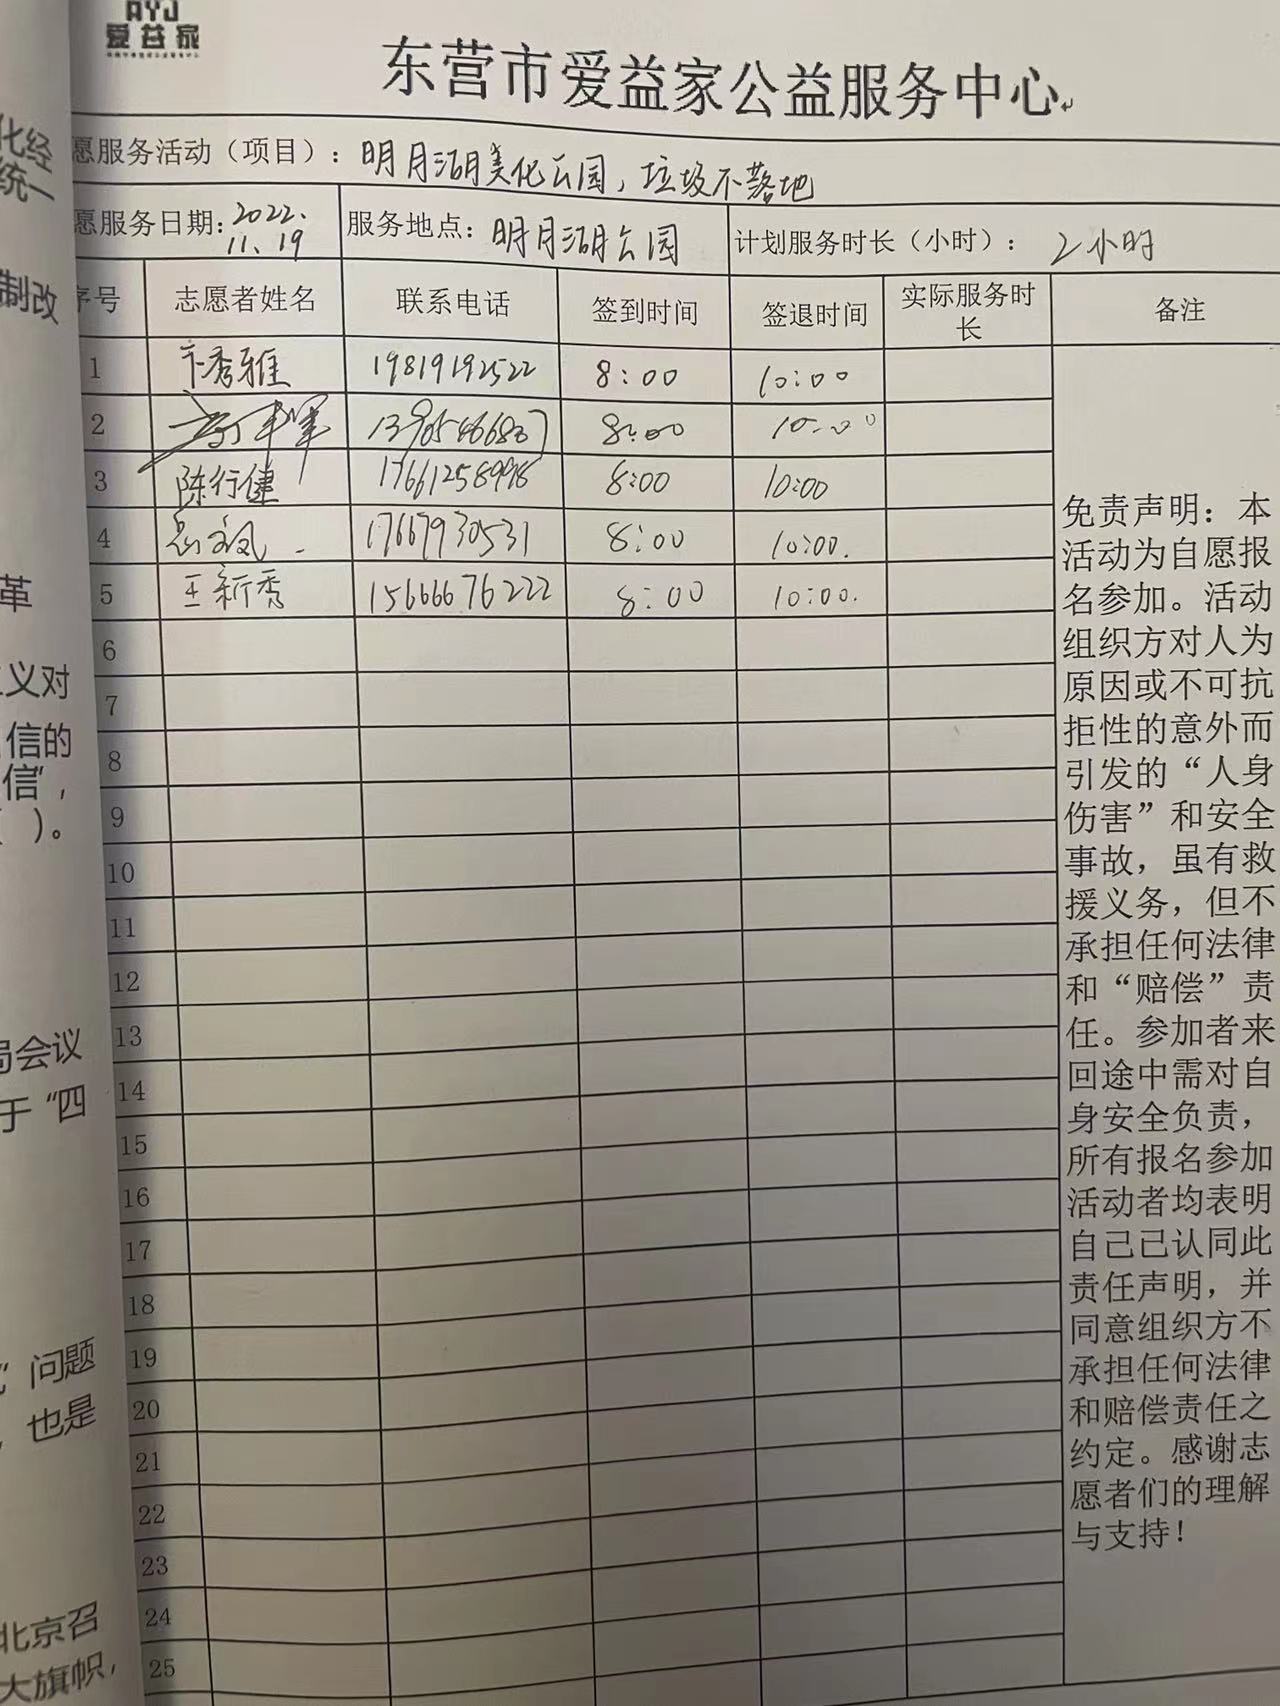 AYJ
爱益家
东营市爱益家公益服务中心
愿服务活动（项目）：明月湖美化公园，垃圾不落地
愿服务日期：2022.11.19 服务地点：明月湖公园 计划服务时长（小时）：2小时
序号 志愿者姓名 联系电话 签到时间 签退时间 实际服务时长 备注
1 卞秀雅 19819192522 8:00 10:00
2 8:00 10:00
3 陈行健 17661258998 8:00 10:00
4 17667930531 8:00 10:00.
5 王新秀 15666676222 8:00 10:00.
6
7
8
9
10
11
12
13
14
15
16
17
18
19
20
21
22
23
24
25
免责声明：本
活动为自愿报
名参加。活动
组织方对人为
原因或不可抗
拒性的意外而
引发的“人身
伤害”和安全
事故，虽有救
援义务，但不
承担任何法律
和“赔偿”责
任。参加者来
回途中需对自
身安全负责，
所有报名参加
活动者均表明
自己已认同此
责任声明，并
同意组织方不
承担任何法律
和赔偿责任之
约定。感谢志
愿者们的理解
与支持！
化经
统一
制改
革
义对
信的
信”，
）。
局会议
于“四
问题
，也是
北京召
大旗帜，